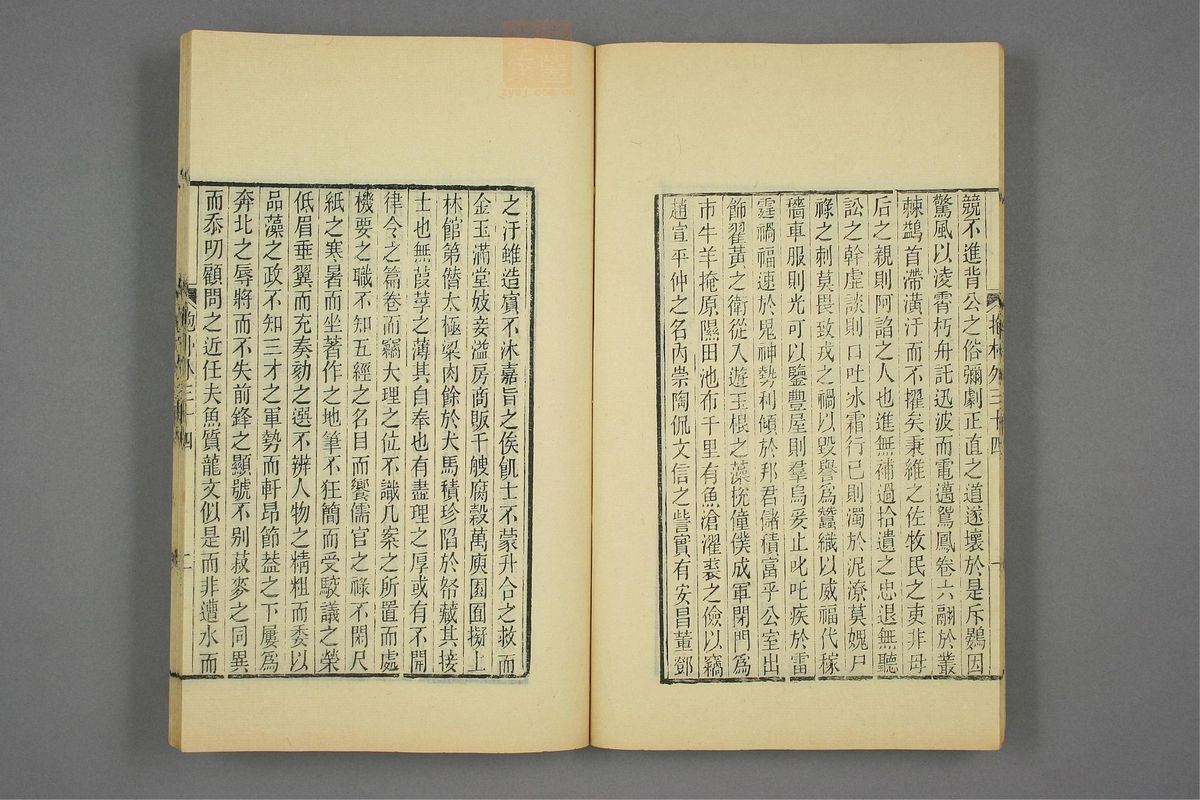 競不進背公之俗彌劇正直之道遂壞於是斥鷃因
驚風以凌霄朽舟託迅波而電邁鴛鳳卷六翮於叢
棘鷁首滯潢汙而不擢矣秉維之佐牧民之吏非母
后之親則阿諂之人也進無補過拾遺之忠退無聽
訟之幹虛談則口吐冰霜行己則濁於泥潦莫媿尸
祿之刺莫畏致戎之禍以毀譽爲蠶織以威福代稼
穡車服則光可以鑒豐屋則羣烏爰止叱吒疾於雷
霆禍福速於鬼神勢利傾於邦君儲積富乎公室出
飾翟黃之衛從入遊玉根之藻梲僮僕成軍閉門爲
市牛羊掩原隰田池布千里有魚滄濯裘之儉以竊
趙宣平仲之名內崇陶侃文信之訾實有安昌董鄧
外三十四
一
之汙雖造賓不沐嘉旨之俟飢士不蒙升合之救而
金玉滿堂妓妾溢房商販千艘腐穀萬庾園囿擬上
林館第僭太極梁肉餘於犬馬積珍陷於帑藏其接
士也無葭莩之薄其自奉也有盡理之厚或有不開
律令之篇卷而竊大理之位不識几案之所置而處
機要之職不知五經之名目而饗儒官之祿不閑尺
紙之寒暑而坐著作之地筆不狂簡而受駮議之榮
低眉垂翼而充奏劾之選不辨人物之精粗而委以
品藻之政不知三才之軍勢而軒昂節葢之下屢爲
奔北之辱將而不失前鋒之顯號不別菽麥之同異
而忝叨顧問之近任夫魚質龍文似是而非遭水而
外三十四
二